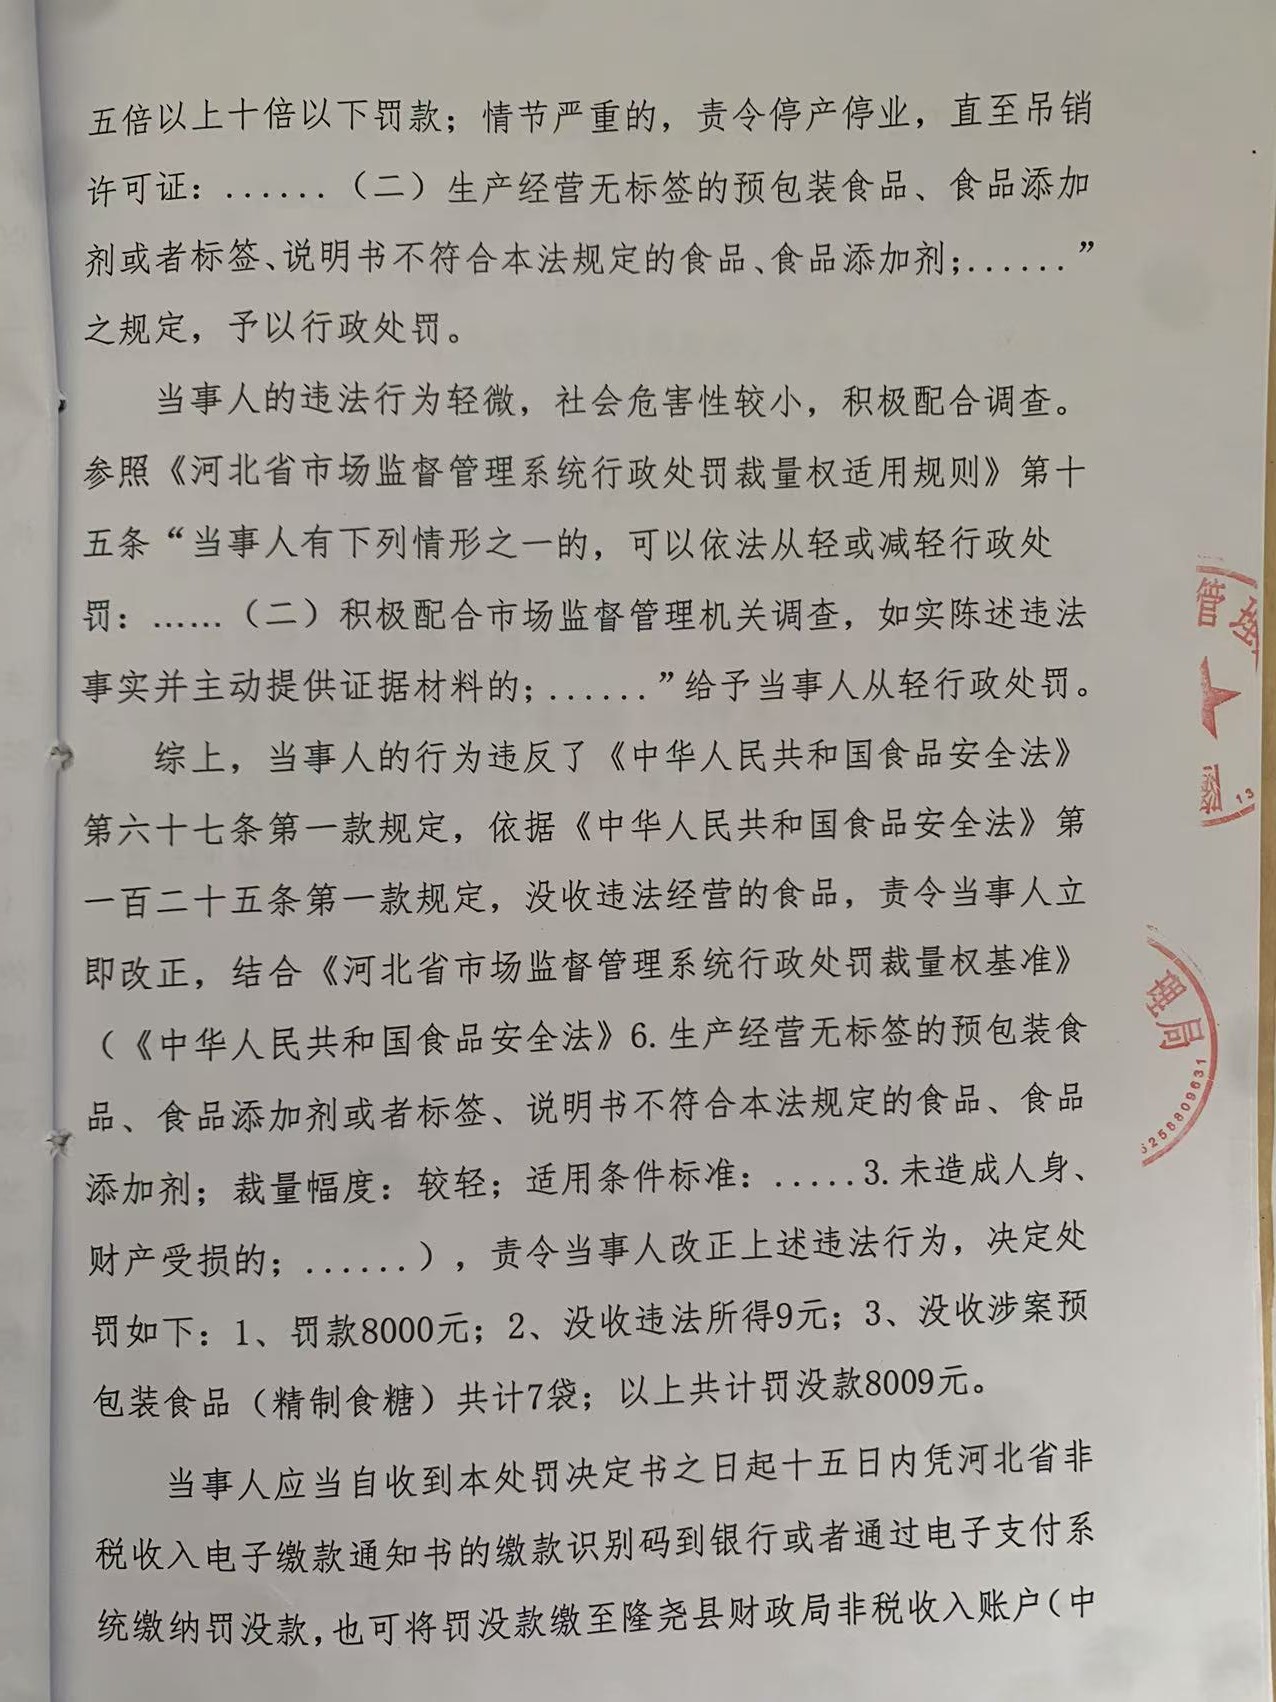 五倍以上十倍以下罚款；情节严重的，责令停产停业，直至吊销
许可证：......（二）生产经营无标签的预包装食品、食品添加
剂或者标签、说明书不符合本法规定的食品、食品添加剂；......”
之规定，予以行政处罚。
当事人的违法行为轻微，社会危害性较小，积极配合调查。
参照《河北省市场监督管理系统行政处罚裁量权适用规则》第十
五条“当事人有下列情形之一的，可以依法从轻或减轻行政处
罚：......（二）积极配合市场监督管理机关调查，如实陈述违法
事实并主动提供证据材料的；......”给予当事人从轻行政处罚。
综上，当事人的行为违反了《中华人民共和国食品安全法》
第六十七条第一款规定，依据《中华人民共和国食品安全法》第
一百二十五条第一款规定，没收违法经营的食品，责令当事人立
即改正，结合《河北省市场监督管理系统行政处罚裁量权基准》
（《中华人民共和国食品安全法》6.生产经营无标签的预包装食
品、食品添加剂或者标签、说明书不符合本法规定的食品、食品
添加剂；裁量幅度：较轻；适用条件标准：.....3.未造成人身、
财产受损的；......），责令当事人改正上述违法行为，决定处
罚如下：1、罚款8000元；2、没收违法所得9元；3、没收涉案预
包装食品（精制食糖）共计7袋；以上共计罚没款8009元。
当事人应当自收到本处罚决定书之日起十五日内凭河北省非
税收入电子缴款通知书的缴款识别码到银行或者通过电子支付系
统缴纳罚没款，也可将罚没款缴至隆尧县财政局非税收入账户（中
管
13
理局
5256809631